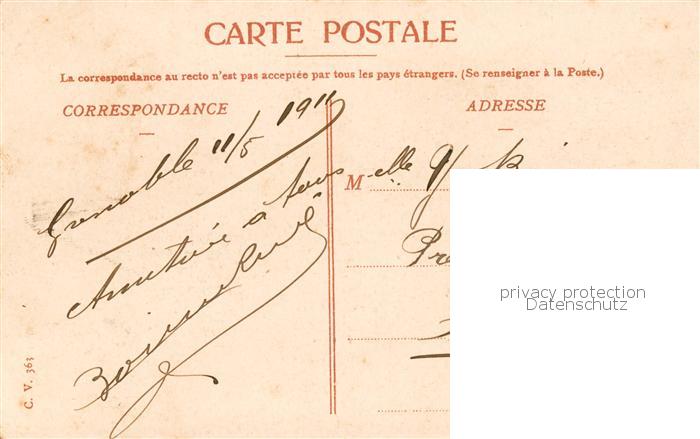 CARTE POSTALE
La correspondance au recto n'est pas acceptée par tous les pays étrangers. (Se renseigner à la Poste.)
CORRESPONDANCE
Grenoble 11/5 1911
Amitiés à tous
C. V. 363
ADRESSE
Melle
privacy protection
Datenschutz